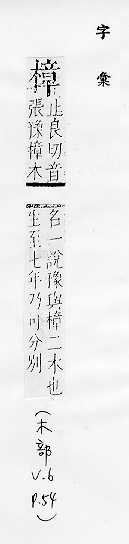 字彙
樟
止良切音
張豫樟木
名一說豫與樟二木也
生至七年乃可分別
(木部 V.6 P.54)